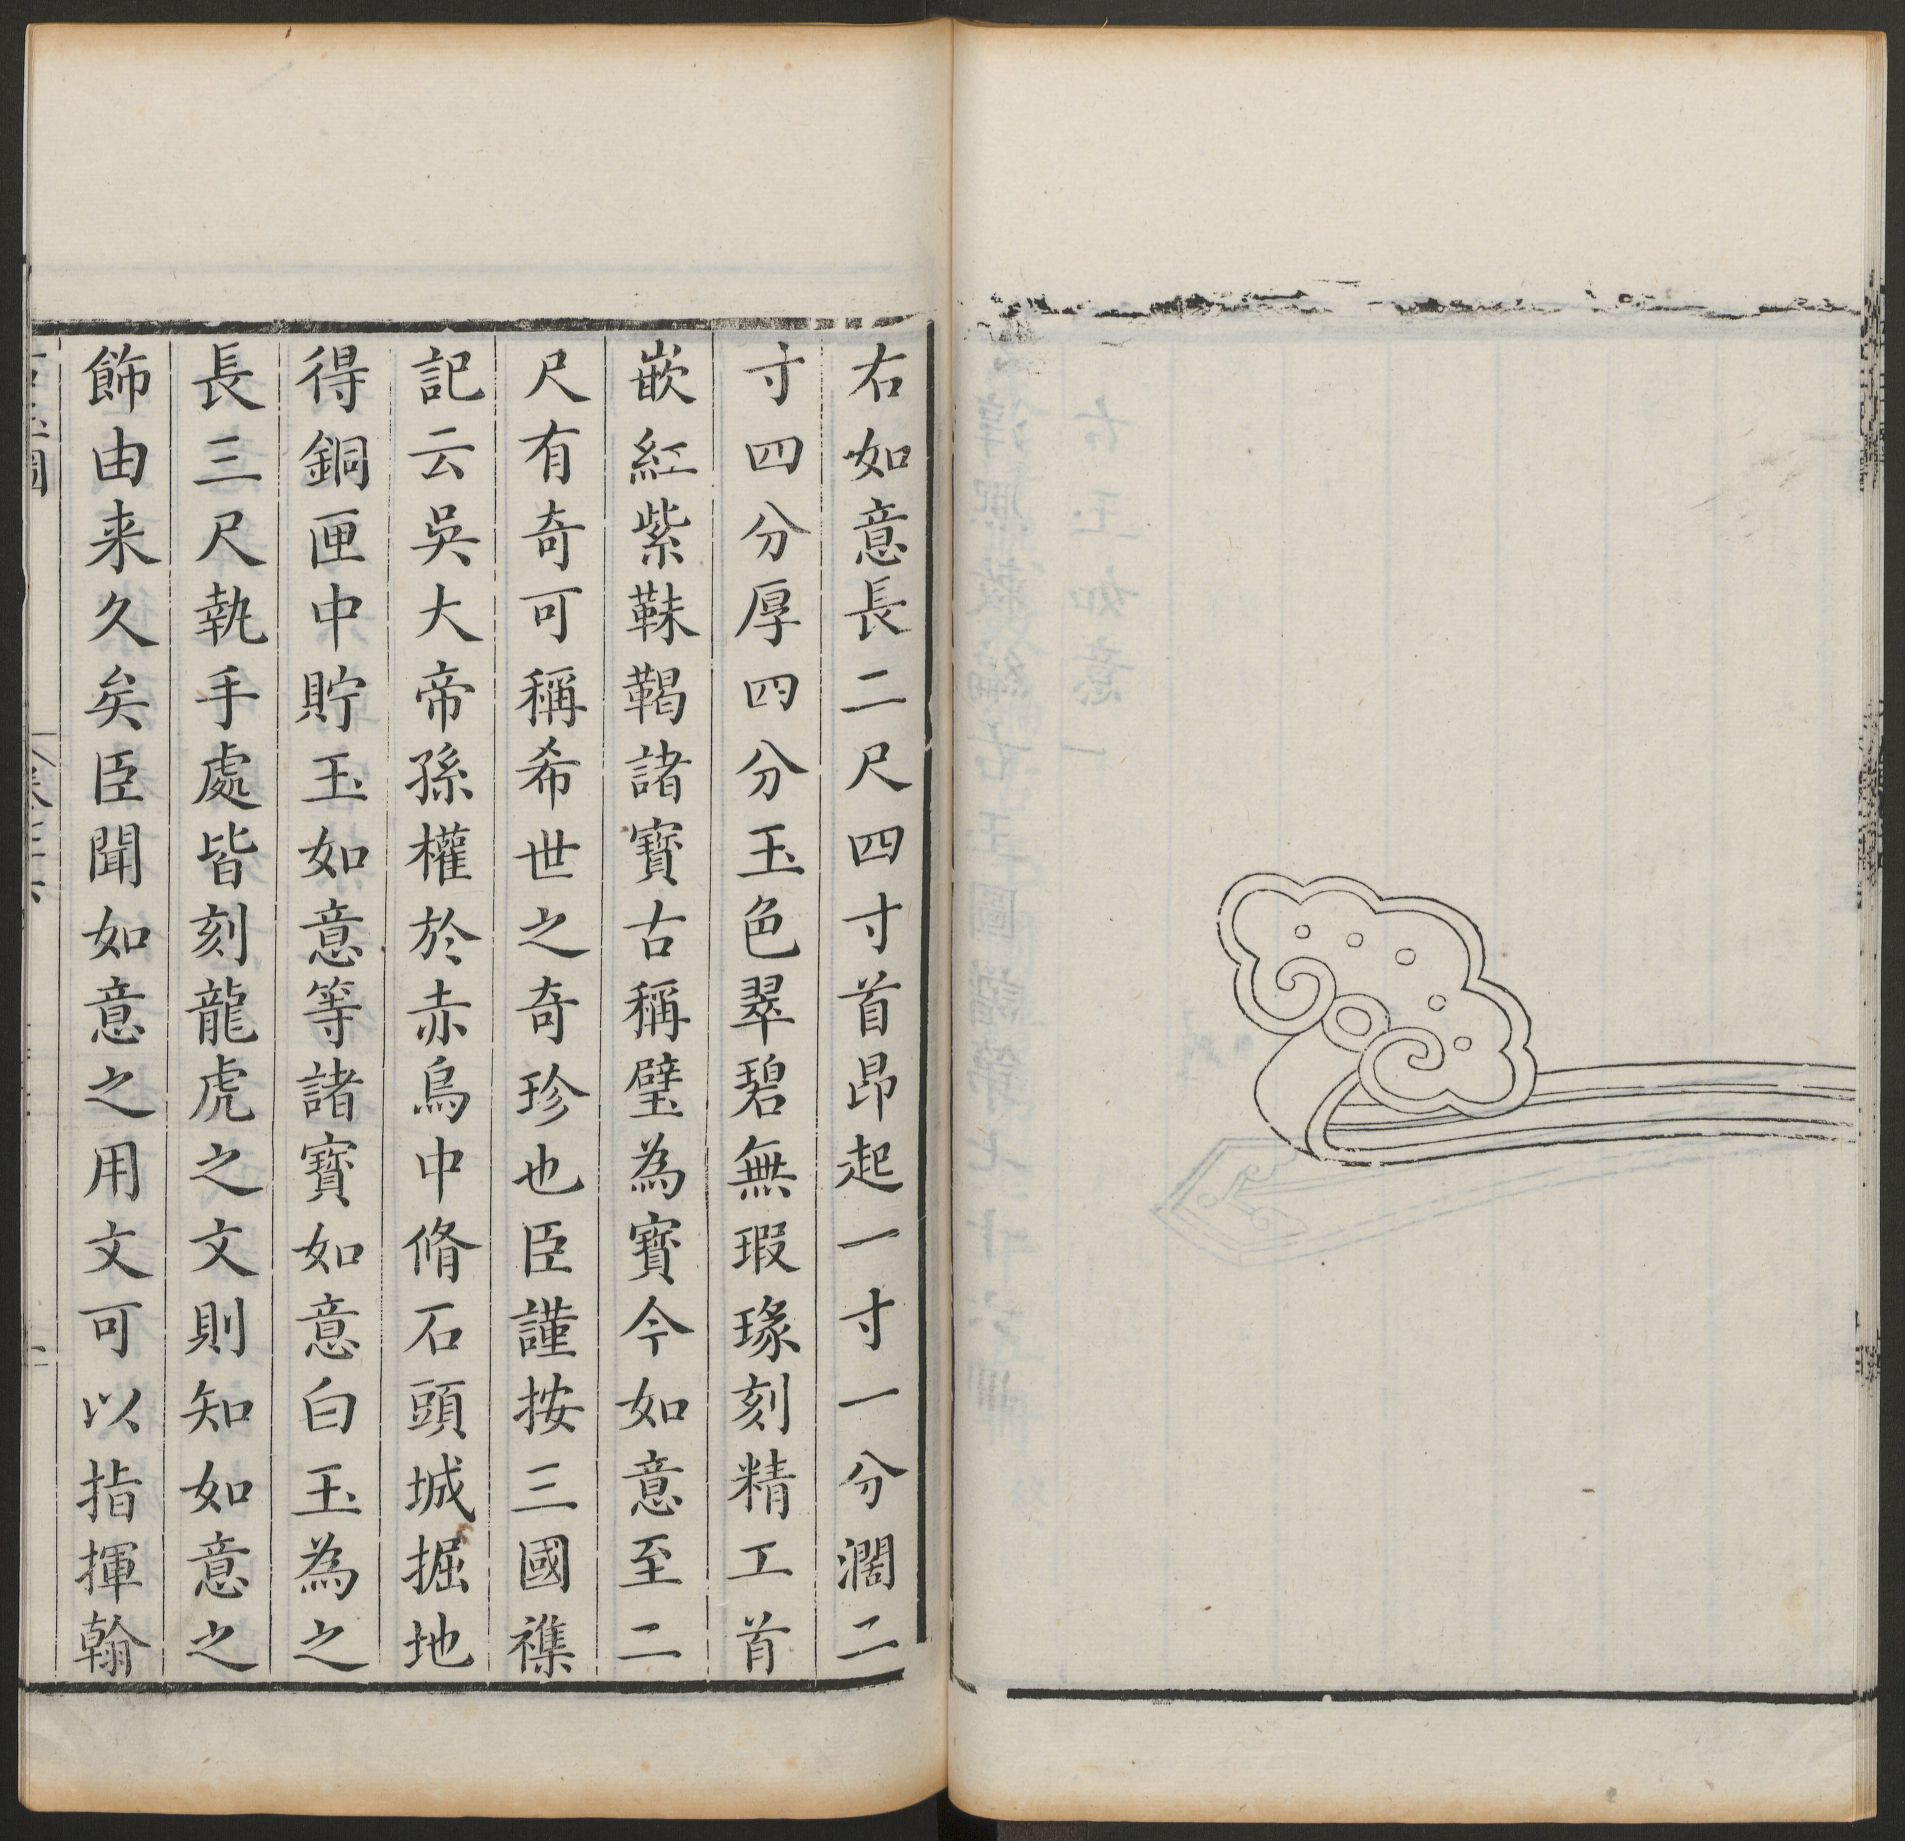 右如意長二尺四寸首昂起一寸一分濶二
寸四分厚四分玉色翠碧無瑕瑑刻精工首
嵌紅紫靺鞨諸寶古稱璧為寶今如意至二
尺有奇可稱希世之奇珍也臣謹按三國襍
記云吳大帝孫權於赤烏中脩石頭城掘地
得銅匣中貯玉如意等諸寶如意白玉為之
長三尺執手處皆刻龍虎之文則知如意之
飾由来久矣臣聞如意之用文可以指揮翰